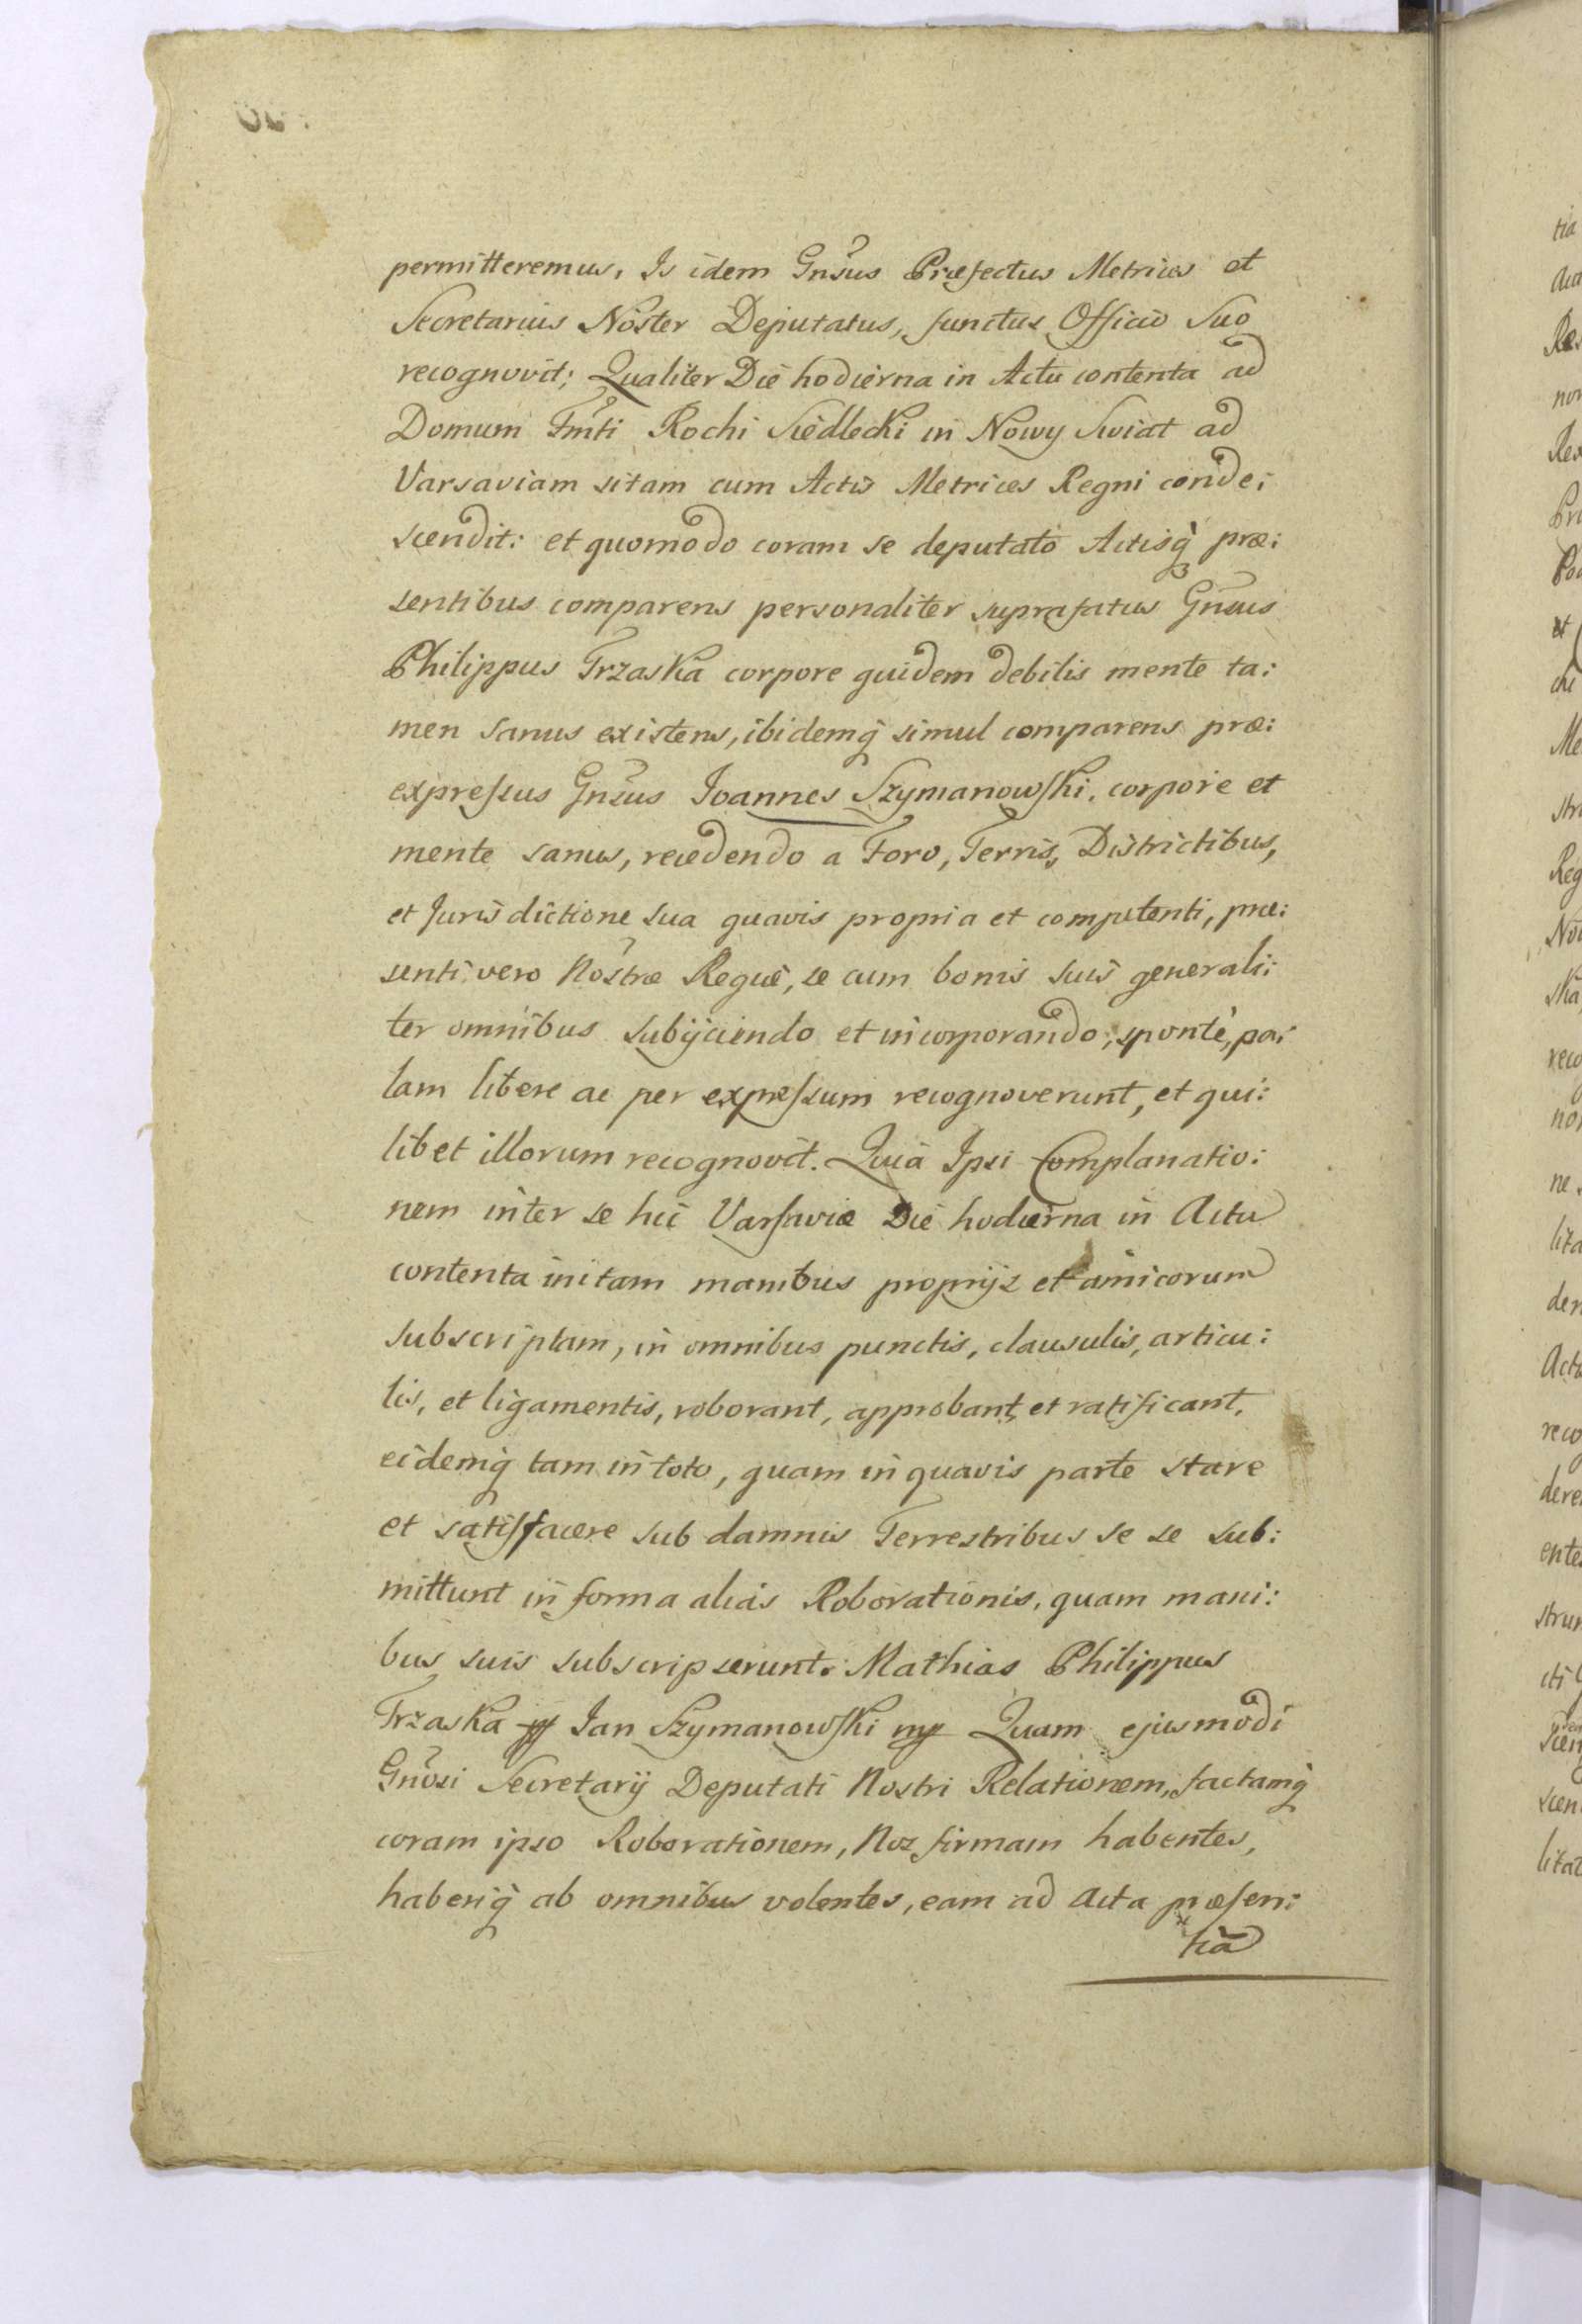 permitteremus, Is idem Gnsus Præfectus Metrices et
Secretarius Noster Deputatus, functus Officio Suo
recognovit; Qualiter Die hodierna in Actu contenta ad
Domum Fmti Rochi Siedlecki in Nowy Swiat ad
Varsaviam sitam cum Actis Metrices Regni conde:
scendit: et quomodo coram se deputato Actisq̀ præ:
sentibus comparens personaliter suprafatus Gnsus
Philippus Trzaska corpore quidem debilis mente ta:
men sanus existens, ibidemq̀ simul comparens præ:
expreſsus Gnsus Ioannes Szymanowſki, corpore et
mente sanus, recedendo a Foro, Terris, Districtibus,
et Jurisdictione sua quavis propria et competenti, præ:
senti vero Nostræ Regiæ, se cum bonis suis generali:
ter omnibus subijciendo et incorporando, sponte, pa:
lam libere ac per expreſsum recognoverunt, et qui:
libet illorum recognovit. Quia Ipsi Complanatio:
nem inter se hic Varſaviæ Die hodierna in Actu
contenta initam manibus proprijs et amicorum
subscriptam, in omnibus punctis, clausulis, articu:
lis, et ligamentis, roborant, approbant, et ratificant,
eidemq̀ tam in toto, quam in quavis parte stare
et satiſfacere sub damnis Terrestribus se se sub:
mittunt in forma alias Roborationis, quam mani:
bus suis subscripserunt. Mathias Philippus
Trzaska mp Jan Szymanowſki mp Quam ejusmodi
Gnosi Secretarij Deputati Nostri Relationem, factamq̀
coram ipso Roborationem, Nos firmam habentes,
haberiq̀ ab omnibus volentes, eam ad Acta præſen:
tia